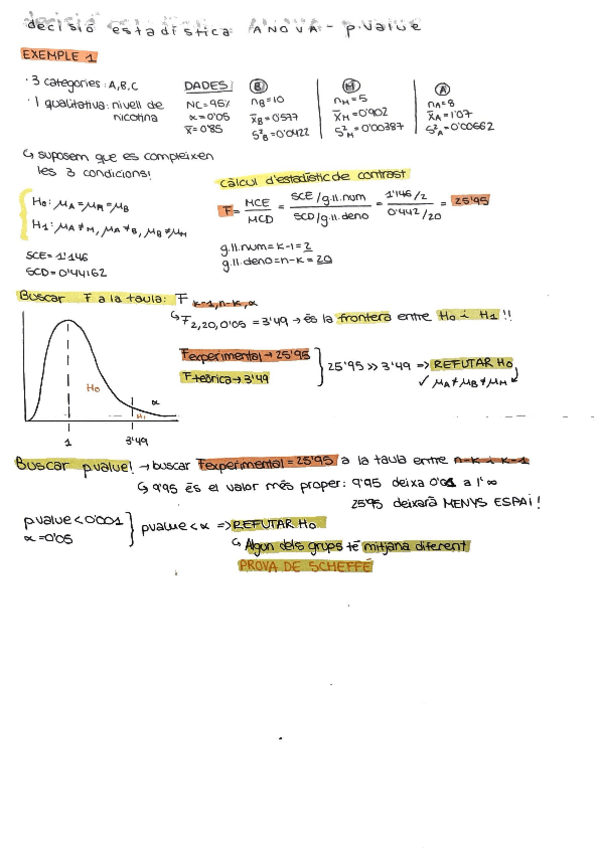 decisió estadística ANOVA - p.value
EXEMPLE 1
· 3 categories: A,B,C
· 1 qualitativa: nivell de nicotina
DADES
NC=95%
α=0'05
x̄=0'85
B
nB=10
x̄B=0'577
S²B=0'0422
M
nM=5
x̄M=0'902
S²M=0'00387
A
nA=8
x̄A=1'07
S²A=0'00662
↳ suposem que es compleixen
les 3 condicions!
H0: μA=μM=μB
H1: μA≠M, μA≠B, μB≠μM
SCE=1'146
SCD=0'44162
càlcul d'estadístic de contrast
F= MCE/MCD = SCE/g.ll.num / SCD/g.ll.deno = 1'146/2 / 0'442/20 = 25'95
g.ll.num=k-1=2
g.ll.deno=n-k=20
Buscar F a la taula: F k-1,n-k,α
↳ F2,20,0'05 = 3'49 → és la frontera entre H0 i H1!!
Fexperimental → 25'95
Fteòrica → 3'49
25'95 >> 3'49 => REFUTAR H0
✓ μA≠μB≠μM
H0
α
H1
1
3'49
Buscar pvalue! → buscar Fexperimental = 25'95 a la taula entre n-k i k-1
↳ 9'95 és el valor més proper: 9'95 deixa a l'∞
25'95 deixarà MENYS ESPAI!
pvalue<0'001
α=0'05
pvalue<α => REFUTAR H0
↳ Algun dels grups té mitjana diferent
PROVA DE SCHEFFÉ